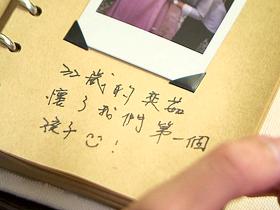 33歲的奕茹
懷了我們第一個
孩子☺！